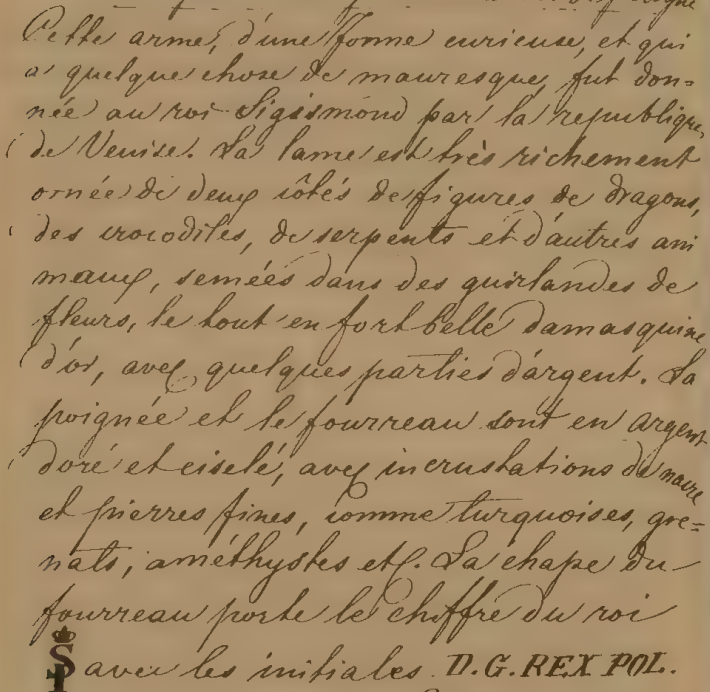 Cette arme, d'une forme curieuse, et qui
a quelque chose de mauresque, fut don=
née au roi Sigismond par la republique
de Venise. La lame est très richement
ornée de deux côtés de figures de dragons,
des crocodiles, de serpents et d'autres ani
maux, semées dans des guirlandes de
fleurs, le tout en fort belle damasquine
d'or, avec quelques parties d'argent. La
poignée et le fourreau sont en argent
doré et ciselé, avec incrustations de nacre
et pierres fines, comme turquoises, gre=
nats, améthystes etc. La chape du
fourreau porte le chiffre du roi
S avec les initiales D.G. REX POL.